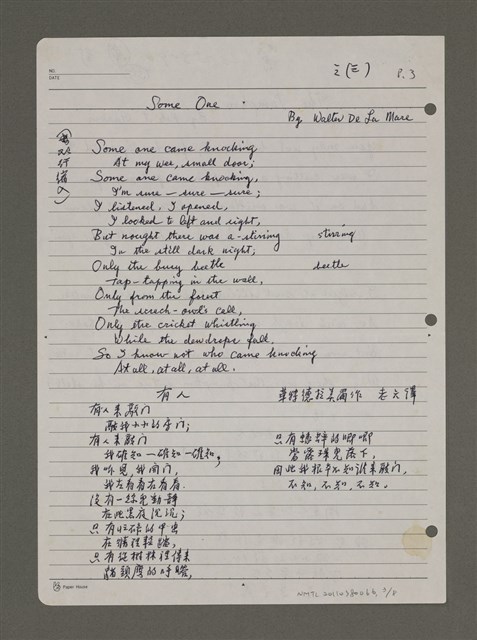 NO.
DATE
之(三)
P. 3
Some One
By Walter De La Mare
行縮
Some one came knocking
At my wee, small door;
Some one came knocking,
I'm sure — sure — sure;
I listened, I opened,
I looked to left and right,
But nought there was a-stirring stirring
In the still dark night;
Only the busy beetle beetle
Tap-tapping in the wall,
Only from the forest
The screech-owl's call,
Only the cricket whistling
While the dewdrops fall,
So I know not who came knocking
At all, at all, at all.
有人
華特德拉美爾作 老六譯
有人來敲門
敲我小小的房門;
有人來敲門
我確知—確知—確知;
我聆見,我開門,
我左看看右看看.
沒有一絲兒動靜
在此黑夜沉沉;
只有忙碌的甲虫
在牆裡敲鑿,
只有從樹林裡傳來
貓頭鷹的呼聲,
只有蟋蟀的唧唧
當露珠兒落下,
因此我根本不知誰來敲門,
不知,不知,不知。
Paper House
NMTL 2011038006 3/8